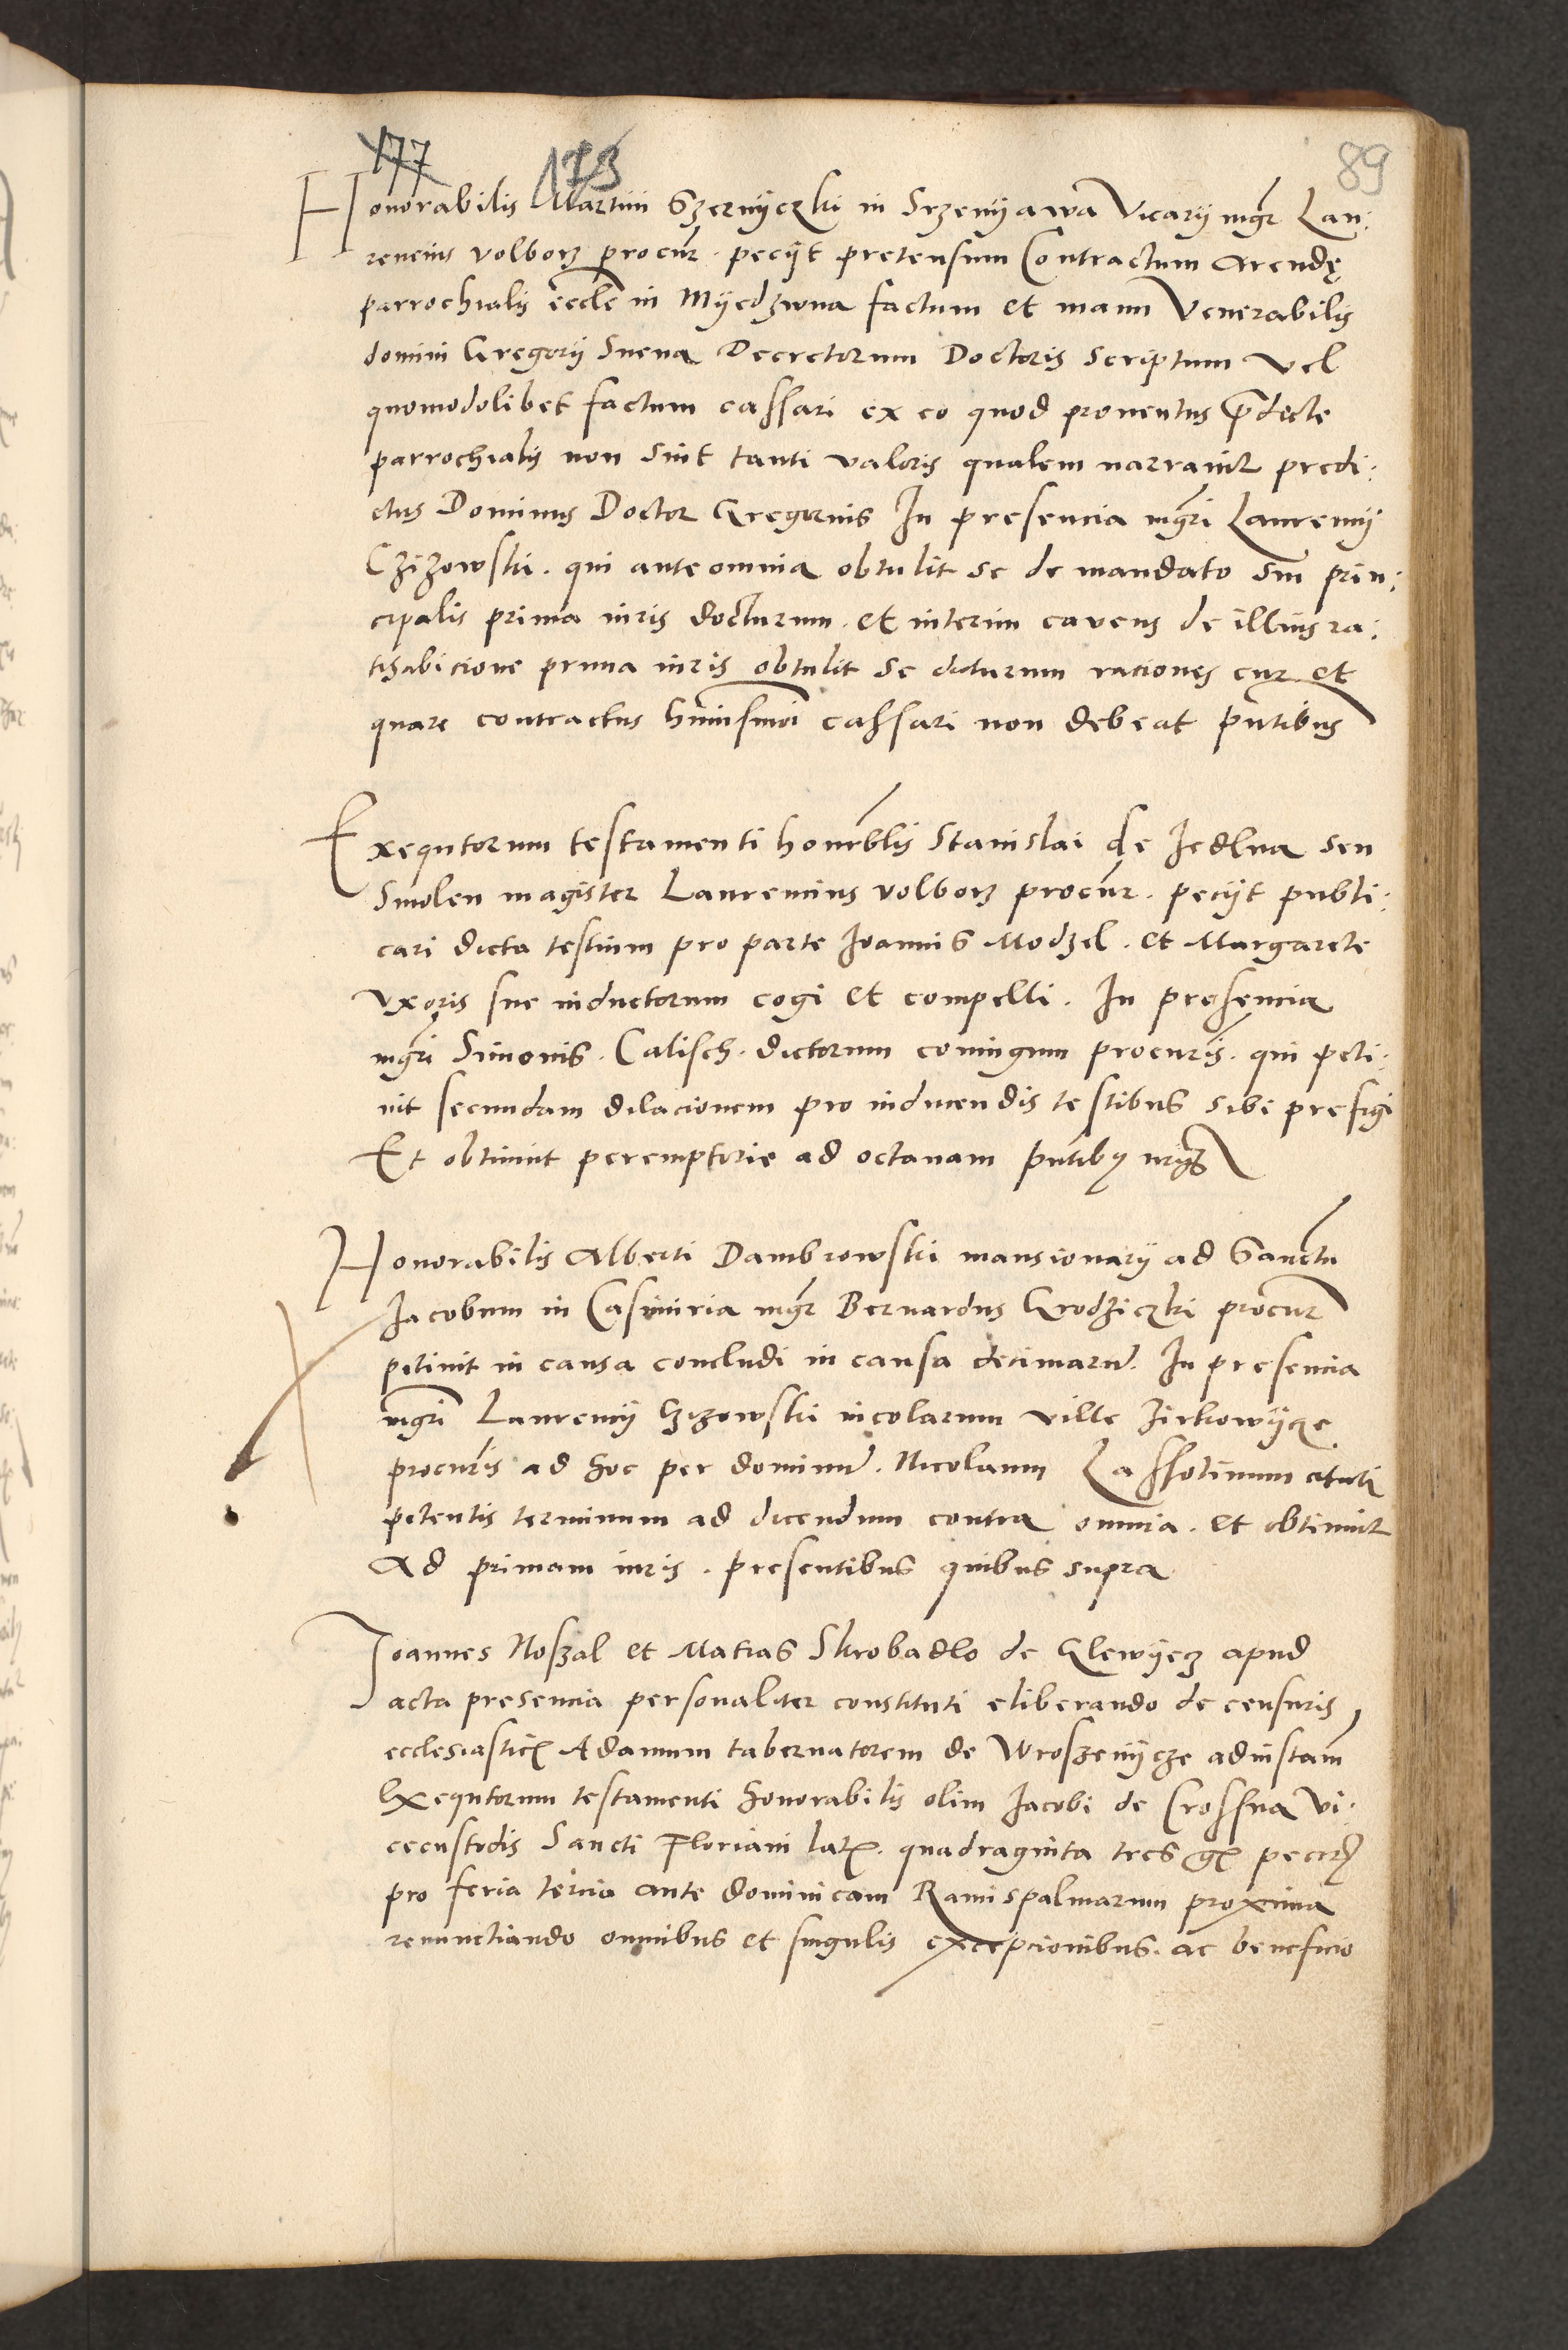 177 173 89
Honorabilis Martini Szernyczki in Srzenyawa Vicarij mgr Lau:
rencius Volborz procur. pecijt pretensum Contractum Arendę
parrochialis eccle in Myedzwna factum et manu Venerabilis
domini Gregorij Snena Decretorum Doctoris scriptum vel
quomodolibet factum cassari ex eo quod prouentus predicte
parrochialis non sint tanti valoris qualem narrauit predi:
ctus Dominus Doctor Gregorius In presencia mgri Laurencij
Czizowski. qui ante omnia obtulit se de mandato sui prin:
cipalis prima iuris docturum. et interim cavens de illius ra:
tihabicione prima iuris obtulit se dicturum raciones cur et
quare contractus huiusmoi cassari non debeat pntibus
Exequtorum testamenti honorblis Stanislai de Jedlna seu
Smolen magister Laurencius Volborz procur. pecijt publi:
cari dicta testium pro parte Joannis Modzel. et Margarete
Vxoris sue inductorum cogi et compelli. In presencia
mgri Simonis. Calisch. dictorum coniugum procuris. qui peti:
uit secundam dilacionem pro inducendis testibus sibi prefigi
Et obtinuit peremptorie ad octauam pntibus
Honorabilis Alberti Dambrowski mansionarij ad Sanctu
Jacobum in Casimiria mgr Bernardus Grodziczki procur
petiuit in causa concludi in causa decimaru. In presencia
mgri Laurencij Czizowski incolarum ville Zirkowycze
procuris ad hoc per dominu. Nicolaum Lassotinum citati
petentis terminum ad dicendum contra omnia. et obtinuit
Ad primam iuris. presentibus quibus supra
Joannes Noszal et Matias Skrobadlo de Glewyecz apud
acta presencia personaliter constituti eliberando de censuris
ecclesiastic Adamum tabernatorem de Wroszenycze ad instam
Exequtorum testamenti honorabilis olim Jacobi de Crossna Vi:
cecustodis Sancti Floriani lat. quadraginta tres gr pecc
pro feria tercia ante dominicam Ramispalmarum proxima
renunctiando omnibus et singulis excepcionibus. ac beneficio